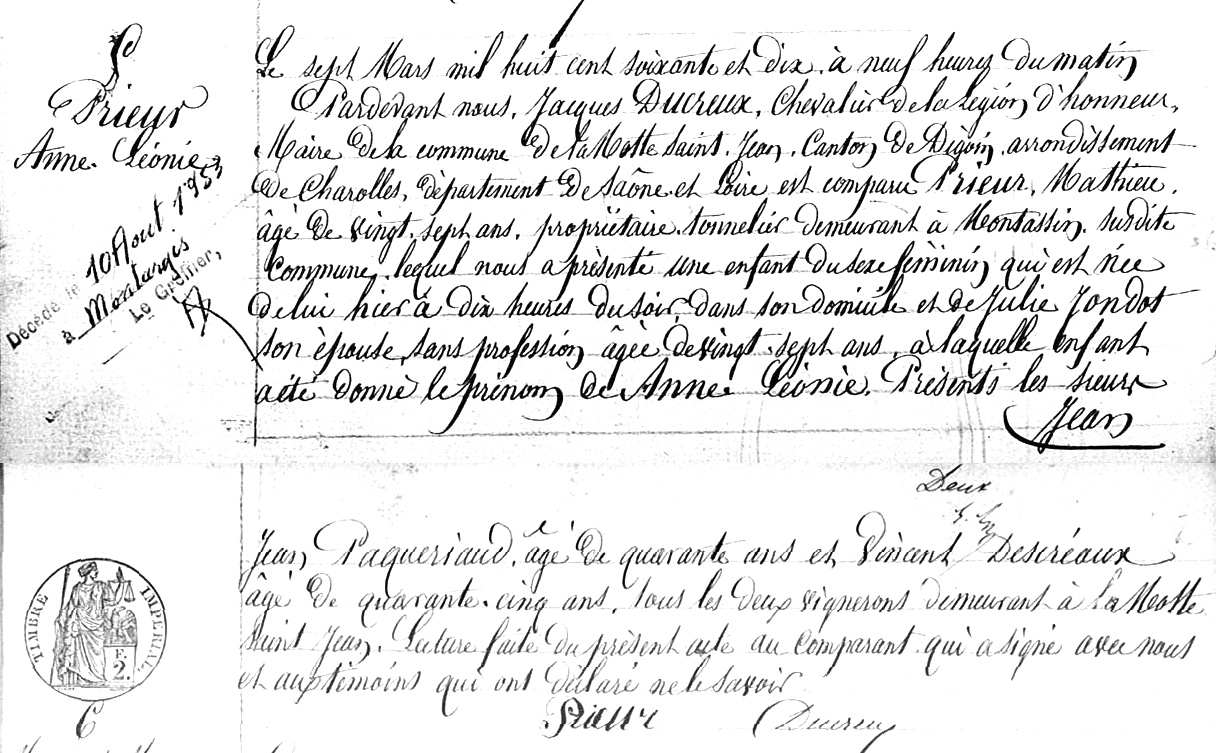 5
Prieur
Anne Léonie
Décédé le 10 Aout 1953
à Montargis
Le Greffier,
Le sept Mars mil huit cent soixante et dix, à neuf heures du matin
Pardevant nous, Jacques Ducreux, Chevalier de la Légion d'honneur,
Maire de la commune de la Motte Saint Jean, Canton de Digoin, arrondissement
de Charolles, département de Saône et Loire est comparu Prieur, Mathieu,
âgé de vingt sept ans, propriétaire tonnelier demeurant à Montassin, susdite
commune, lequel nous a présenté une enfant du sexe féminin qui est née
de lui hier à dix heures du soir, dans son domicile et de Julie Jondot
son épouse, sans profession, âgée de vingt sept ans, à laquelle enfant
a été donné le prénom de Anne Léonie. Présents les sieurs
Jean
Deux
Jean Paqueriaud, âgé de quarante ans et Vincent Desiréaux
âgé de quarante cinq ans, tous les deux vignerons demeurant à La Motte
Saint Jean. Lecture faite du présent acte au comparant qui a signé avec nous
et aux témoins qui ont déclaré ne le savoir
Prieur Ducreux
TIMBRE IMPERIAL
F.
2.
6